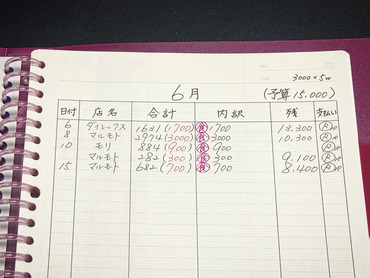 3000×5w
6月 (予算15,000)
日付 店名 合計 内訳 残 支払い
6 ダイレックス 1631(1700) 食1700 13,300
8 マルモト 2974(3000) 食3000 10,300
10 モリ 884(900) 食900
マルモト 282(300) 食300 9,100
15 マルモト 682(700) 食700 8,400